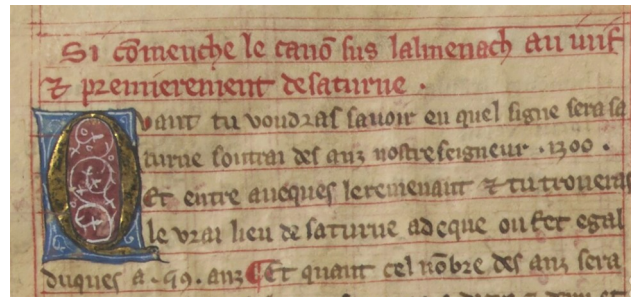 Si cõmenche le canõ sus lalmenach au iuif
⁊ premierement de saturne .
Quant tu voudras savoir en quel signe sera sa
turne soutrai des anz nostre seigneur . 1300 .
Et entre avecques le remenant ⁊ tu troveras
le vrai lieu de saturne adeque ou fet egal
duques a . 99 . anz ¶ Et quant cel nõbre des anz sera